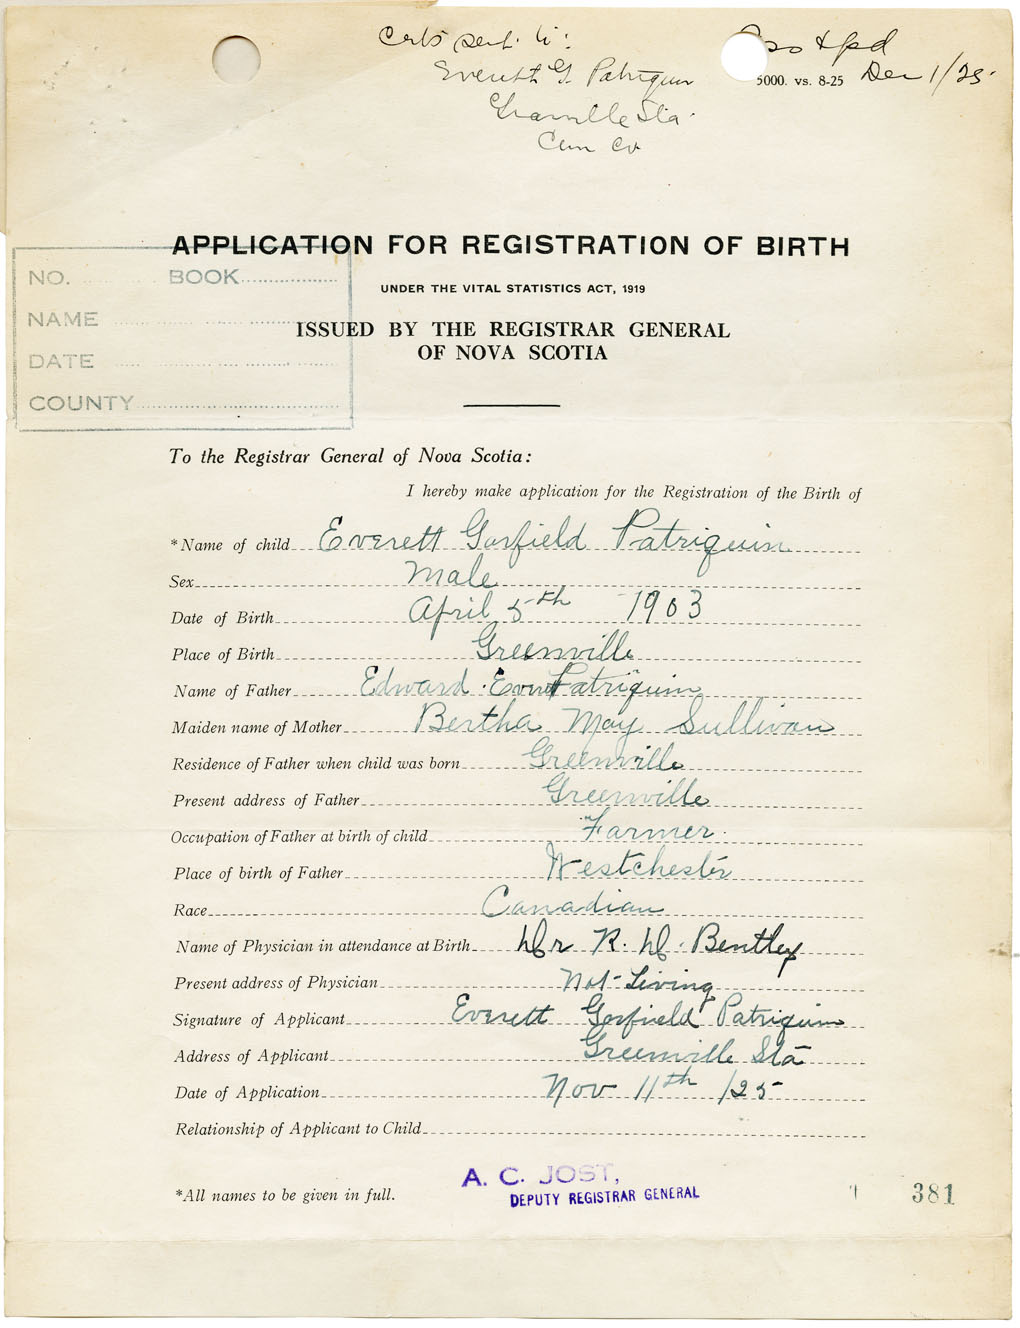 Certs sent to:
Everett G. Patriquin
Greenville Sta.
Cum Co
& pd
5000. vs. 8-25 Dec 1/25.
APPLICATION FOR REGISTRATION OF BIRTH
UNDER THE VITAL STATISTICS ACT, 1919
ISSUED BY THE REGISTRAR GENERAL
OF NOVA SCOTIA
NO. BOOK
NAME
DATE
COUNTY
To the Registrar General of Nova Scotia:
I hereby make application for the Registration of the Birth of
*Name of child Everett Garfield Patriquin
Sex Male
Date of Birth April 5th 1903
Place of Birth Greenville
Name of Father Edward Everett Patriquin
Maiden name of Mother Bertha May Sullivan
Residence of Father when child was born Greenville
Present address of Father Greenville
Occupation of Father at birth of child Farmer.
Place of birth of Father Westchester
Race Canadian
Name of Physician in attendance at Birth Dr R. D. Bentley
Present address of Physician Not Living
Signature of Applicant Everett Garfield Patriquin
Address of Applicant Greenville Sta
Date of Application Nov 11th /25
Relationship of Applicant to Child
A. C. JOST,
DEPUTY REGISTRAR GENERAL
*All names to be given in full.
381